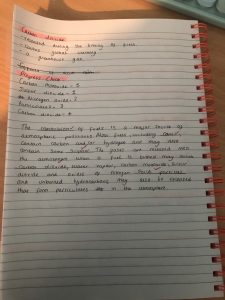 Carbon dioxide
- released during the burning of fuels.
- causes global warming
- greenhouse gas
of acid rain
Progress Check
Carbon monoxide - 3
Sulfur dioxide - 1
Nitrogen oxide - 2
Particulates - 5
Carbon dioxide - 4
The combustion of fuels is a major source of
atmospheric pollutants. Most fuels, including coal,
contain carbon and/or hydrogen and may also
contain some sulfur. The gases are released into
the atmosphere when a fuel is burned may include
Carbon dioxide, water vapour, carbon monoxide, sulfur
dioxide and oxides of nitrogen. Solid particles
and unburned hydrocarbons may also be released
that form particulates in the atmosphere.